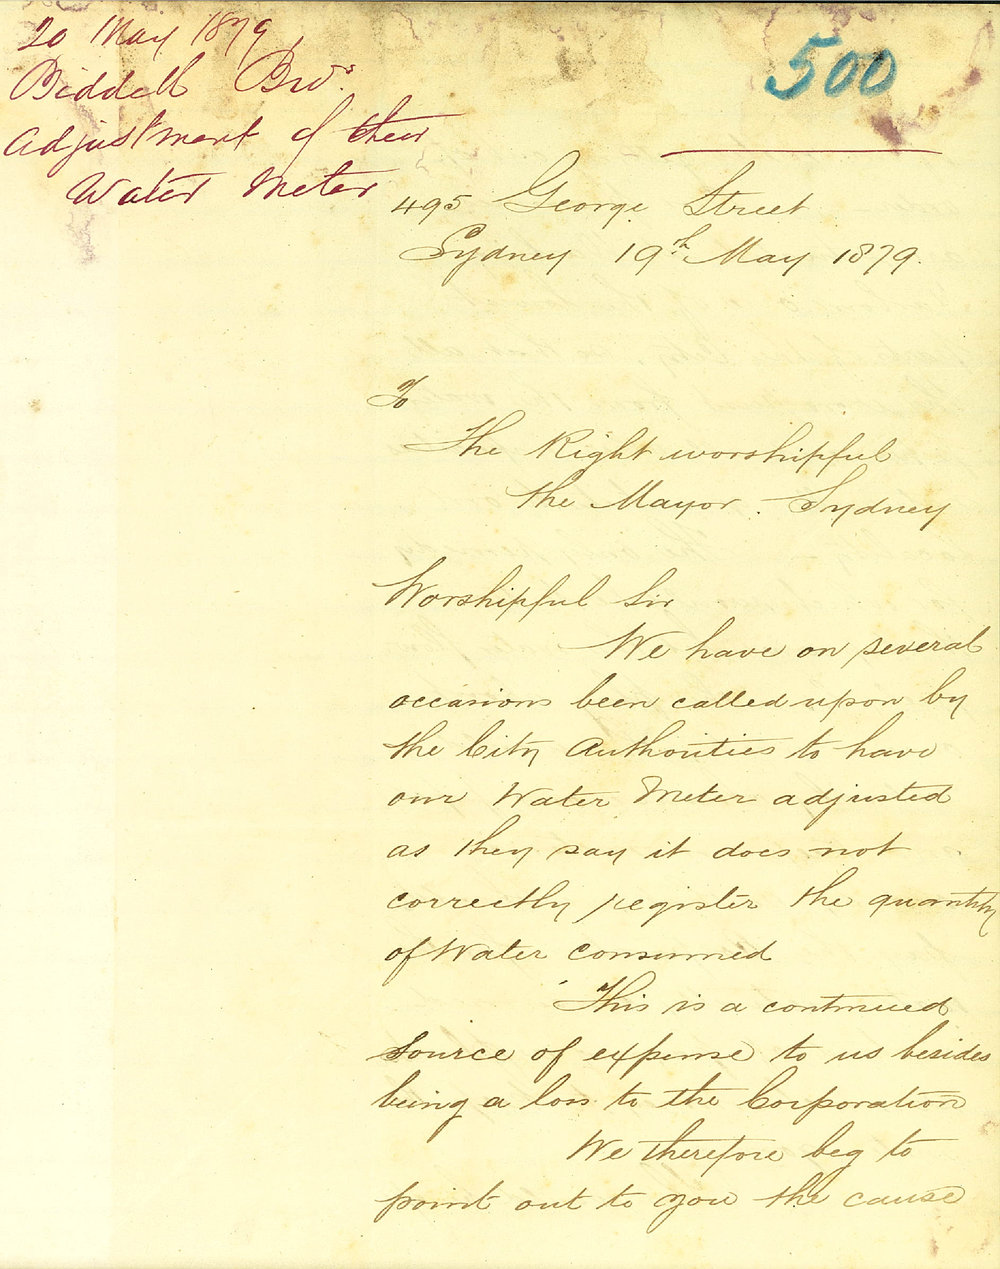 20 May 1879
Biddell Bros
Adjustment of their
Water Meter
500
495 George Street
Sydney 19th May 1879.
To
The Right worshipful
the Mayor. Sydney
Worshipful Sir
We have on several
occasions been called upon by
the City Authorities to have
our Water Meter adjusted
as they say it does not
correctly register the quantity
of Water consumed
This is a continued
source of expense to us besides
being a loss to the Corporation
We therefore beg to
point out to you the cause